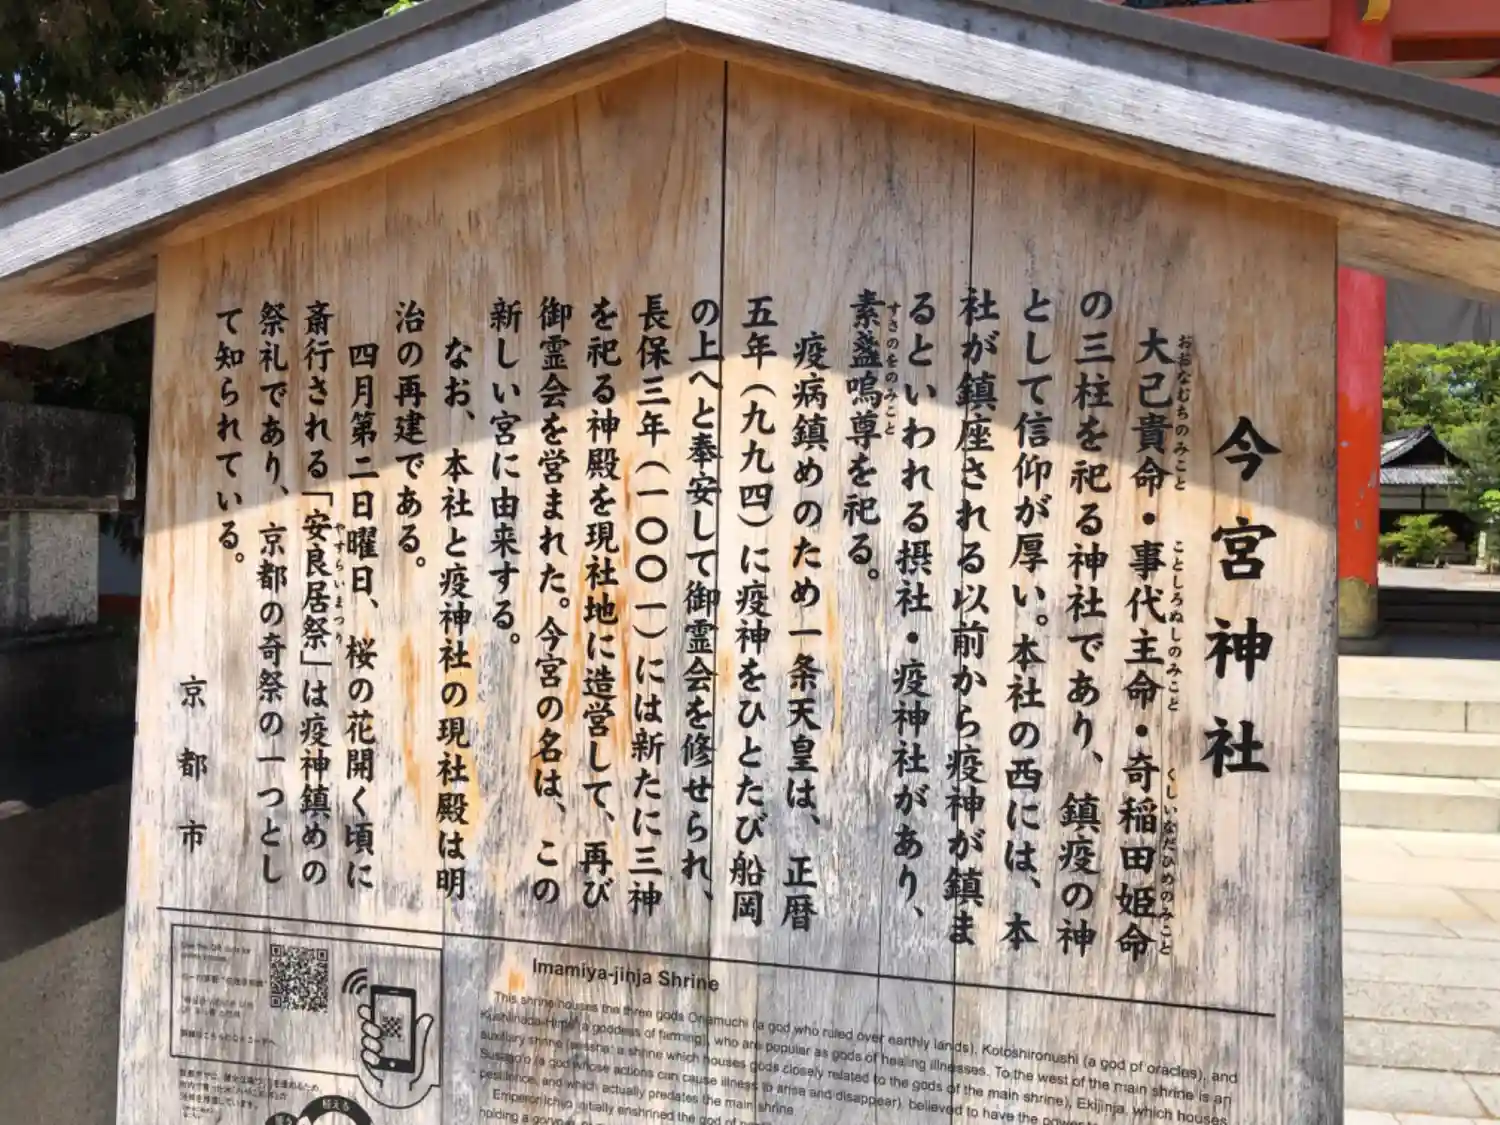 今宮神社
大己貴命・事代主命・奇稲田姫命
おおなむちのみこと
ことしろぬしのみこと
くしいなだひめのみこと
の三柱を祀る神社であり、鎮疫の神
として信仰が厚い。本社の西には、本
社が鎮座される以前から疫神が鎮ま
るといわれる摂社・疫神社があり、
素盞嗚尊を祀る。
すさのをのみこと
疫病鎮めのため一条天皇は、正暦
五年(九九四)に疫神をひとたび船岡
の上へと奉安して御霊会を修せられ、
長保三年(一〇〇一)には新たに三神
を祀る神殿を現社地に造営して、再び
御霊会を営まれた。今宮の名は、この
新しい宮に由来する。
なお、本社と疫神社の現社殿は明
治の再建である。
四月第二日曜日、桜の花開く頃に
斎行される「安良居祭」は疫神鎮めの
やすらいまつり
祭礼であり、京都の奇祭の一つとし
て知られている。
京都市
Imamiya-jinja Shrine
This shrine houses the three gods Onamuchi (a god who ruled over earthly lands), Kotoshironushi (a god of oracles), and
Kushiinada-Hime (a goddess of farming), who are popular as gods of healing illnesses. To the west of the main shrine is an
auxiliary shrine (sessha: a shrine which houses gods closely related to the gods of the main shrine), Ekijinja, which houses
Susano'o (a god whose actions can cause illness to arise and disappear), believed to have the power
pestilence, and which actually predates the main shrine.
Emperor Ichijo initially enshrined the god of
holding a goryo-e